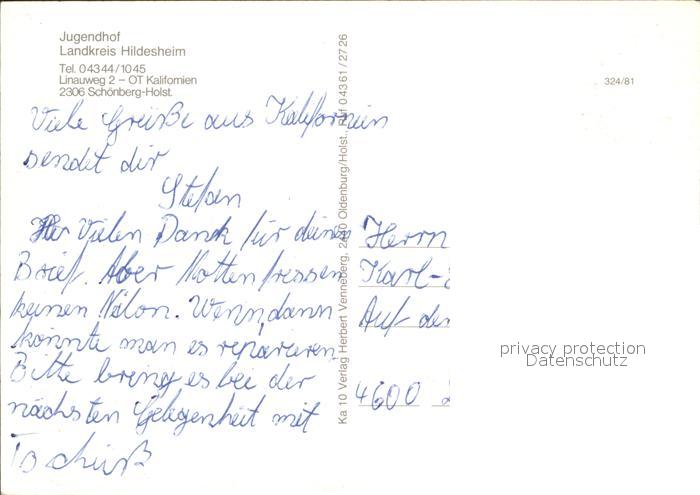 Jugendhof
Landkreis Hildesheim
Tel. 04344/1045
Linauweg 2 – OT Kalifornien
2306 Schönberg-Holst.
324/81
Viele Grüße aus Kalifornien
sendet dir
Stefan
Vielen Dank für deinen
Brief. Aber Motten fressen
keinen Nilon. Wenn, dann
könnte man es reparieren.
Bitte bring es bei der
nächsten Gelegenheit mit
Tschüß
Ka 10 Verlag Herbert Venneberg, 2440 Oldenburg/Holst., Ruf 04361/2726
Herrn
Karl-
Auf der
4600
privacy protection
Datenschutz